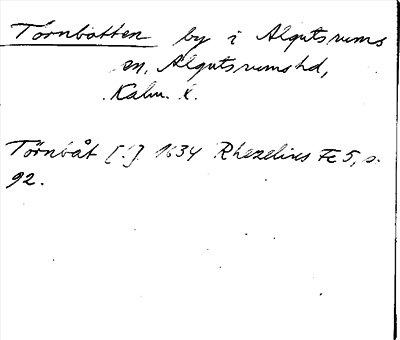 Törnbotten by i Algutsrums
sn, Algutsrums hd,
Kalm. l.
Törnbåt [!] 1634 Rhezelius Fc 5, s.
92.